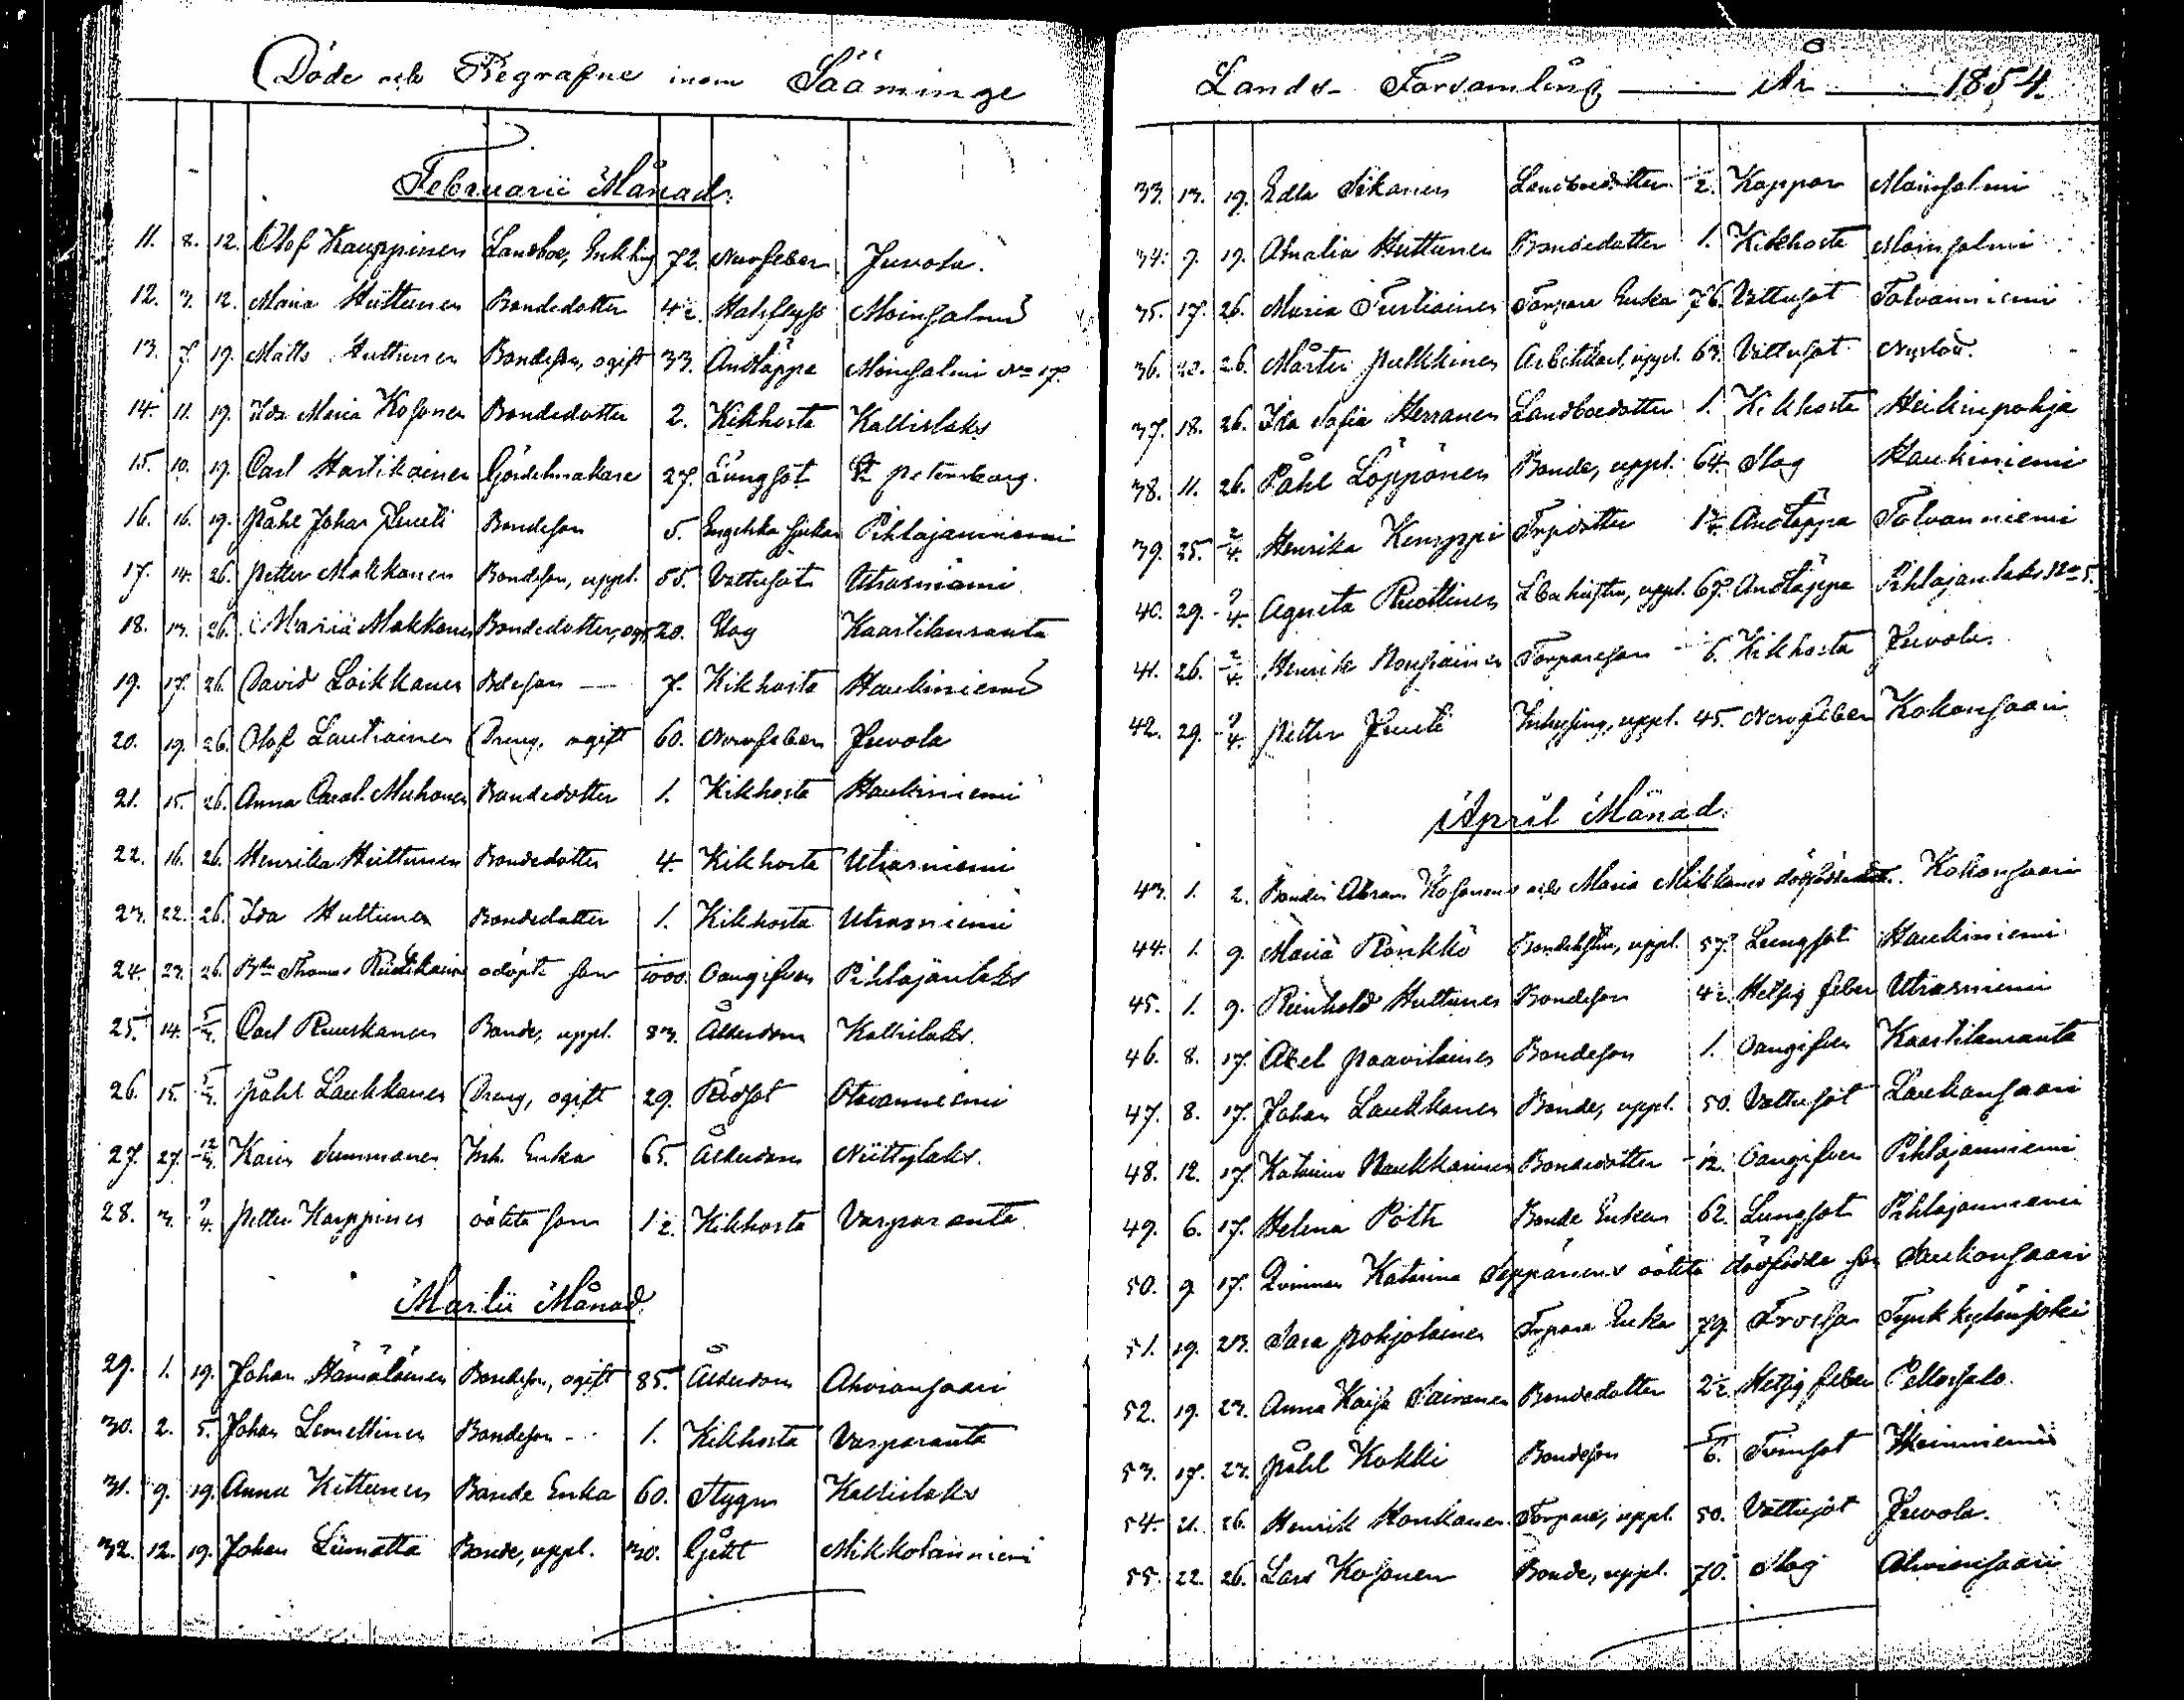 Döde och Begrafne inom Sääminge
Februarii Månad.
11. 8. 12. Olof Kauppinen Landboe, Enkling 72. Nervfeber Juvola.
12. 3. 12. Maria Huttunen Bondedotter 4½ Halsflyss Moinsalmi
13. 7. 19. Matts Huttunen Bondeson, ogift 33. Andtäppa Moinsalmi No 17.
14. 11. 19. Ida Maria Kosonen Bondedotter 2. Kikhosta Kallislaks
15. 10. 19. Carl Hartikainen Gördelmakare 27. Lungsot St. Petersburg.
16. 16. 19. Påhl Johan Juuti Bondeson 5. Engelska sjukan Pihlajanniemi
17. 14. 26. Petter Makkonen Bondeson, uppl. 55. Vattusot Utrasniemi
18. 13. 26. Maria Makkonen Bondedotter, og. 20. Slag Kaartilanranta
19. 17. 26. David Loikkanen Bdeson — 7. Kikhosta Haukiniemi
20. 19. 26. Olof Lautiainen Dreng, ogift 60. Nervfeber Juvola
21. 15. 26. Anna Carol. Muhonen Bondedotter 1. Kikhosta Haukiniemi
22. 16. 26. Henrika Huttunen Bondedotter 4. Kikhosta Utrasniemi
23. 22. 26. Ida Huttunen Bondedotter 1. Kikhosta Utrasniemi
24. 23. 26. Thomas odöpte son Oangifven Pihlajanlaks
25. 14. 5/3. Carl Ruuskanen Bonde, uppl. 83. Ålderdom Kallislaks.
26. 15. 5/3. Påhl Laukkanen Dreng, ogift 29. Rödsot Otavanniemi
27. 27. 12/3. Karin Summanen Inh. Enka 65. Ålderdom Niittylaks.
28. 3. 9/4. Petter Karppinen oäkta son 1½ Kikhosta Varparanta
Martii Månad.
29. 1. 19. Johan Hämäläinen Bondeson, ogift 85. Ålderdom Ahvionsaari
30. 2. 5. Johan Lemettinen Bondeson 1. Kikhosta Varparanta
31. 9. 19. Anna Kettunen Bonde Enka 60. Stygn Kallislaks
32. 12. 19. Johan Liimatta Bonde, uppl. 30. Gikt Mikkolanniemi
Lands- Församling — År — 1854.
33. 13. 19. Edla Sikanen Landboedotter ½. Koppor Moinsalmi
34. 9. 19. Amalia Huttunen Bondedotter 1. Kikhosta Moinsalmi
35. 17. 26. Maria Turtiainen Torpare Enka 76. Vattusot Tolvanniemi
36. 22. 26. Mårten Pulkkinen Arbetskarl, uppl. 63. Vattusot Nyslott.
37. 18. 26. Ida Sofia Herranen Landboedotter 1. Kikhosta Heikinpohja
38. 11. 26. Påhl Löppönen Bonde, uppl. 64. Slag Haukiniemi
39. 25. 2/4. Henrika Kemppi Trpdotter Andtäppa Tolvanniemi
40. 29. 9/4. Agneta Ruottinen Lboehustru, uppl. 67. Andtäppa Pihlajanlaks No 5.
41. 26. 2/4. Henrik Nousiainen Torpareson 6. Kikhosta Juvola.
42. 29. 9/4. Petter Juuti Inhysing, uppl. 45. Nervfeber Kokonsaari
April Månad.
43. 1. 2. Bonden Abram Kosonens och Maria Mikkones dödfödde Kokonsaari
44. 1. 9. Maria Rönkkö Bondehustru, uppl. 57. Lungsot Haukiniemi
45. 1. 9. Reinhold Huttunen Bondeson 4½ Hetsig feber Utrasniemi
46. 8. 17. Axel Paavilainen Bondeson 1. Oangifven Kaartilanranta
47. 8. 17. Johan Laukkanen Bonde, uppl. 50. Vattusot Laukansaari
48. 12. 17. Katarina Naukkarinen Bondedotter 1/12. Oangifven Pihlajanniemi
49. 6. 17. Helena Pöth Bonde Enkan 62. Lungsot Pihlajanniemi
50. 9. 17. Qvinnan Katarina Seppänens oäkta dödfödde son Laukansaari
51. 19. 23. Sara Pohjolainen Torpare Enka 79. Frossan Tynkkylänjoki
52. 19. 23. Anna Kaisa Sairanen Bondedotter 2½ Hetsig feber Pellossalo.
53. 17. 23. Påhl Kokki Bondeson 5/6. Tvinsot
54. 21. 26. Henrik Honkanen Torpare, uppl. 50. Vattusot Juvola.
55. 22. 26. Lars Kosonen Bonde, uppl. 70. Slag Ahvionsaari